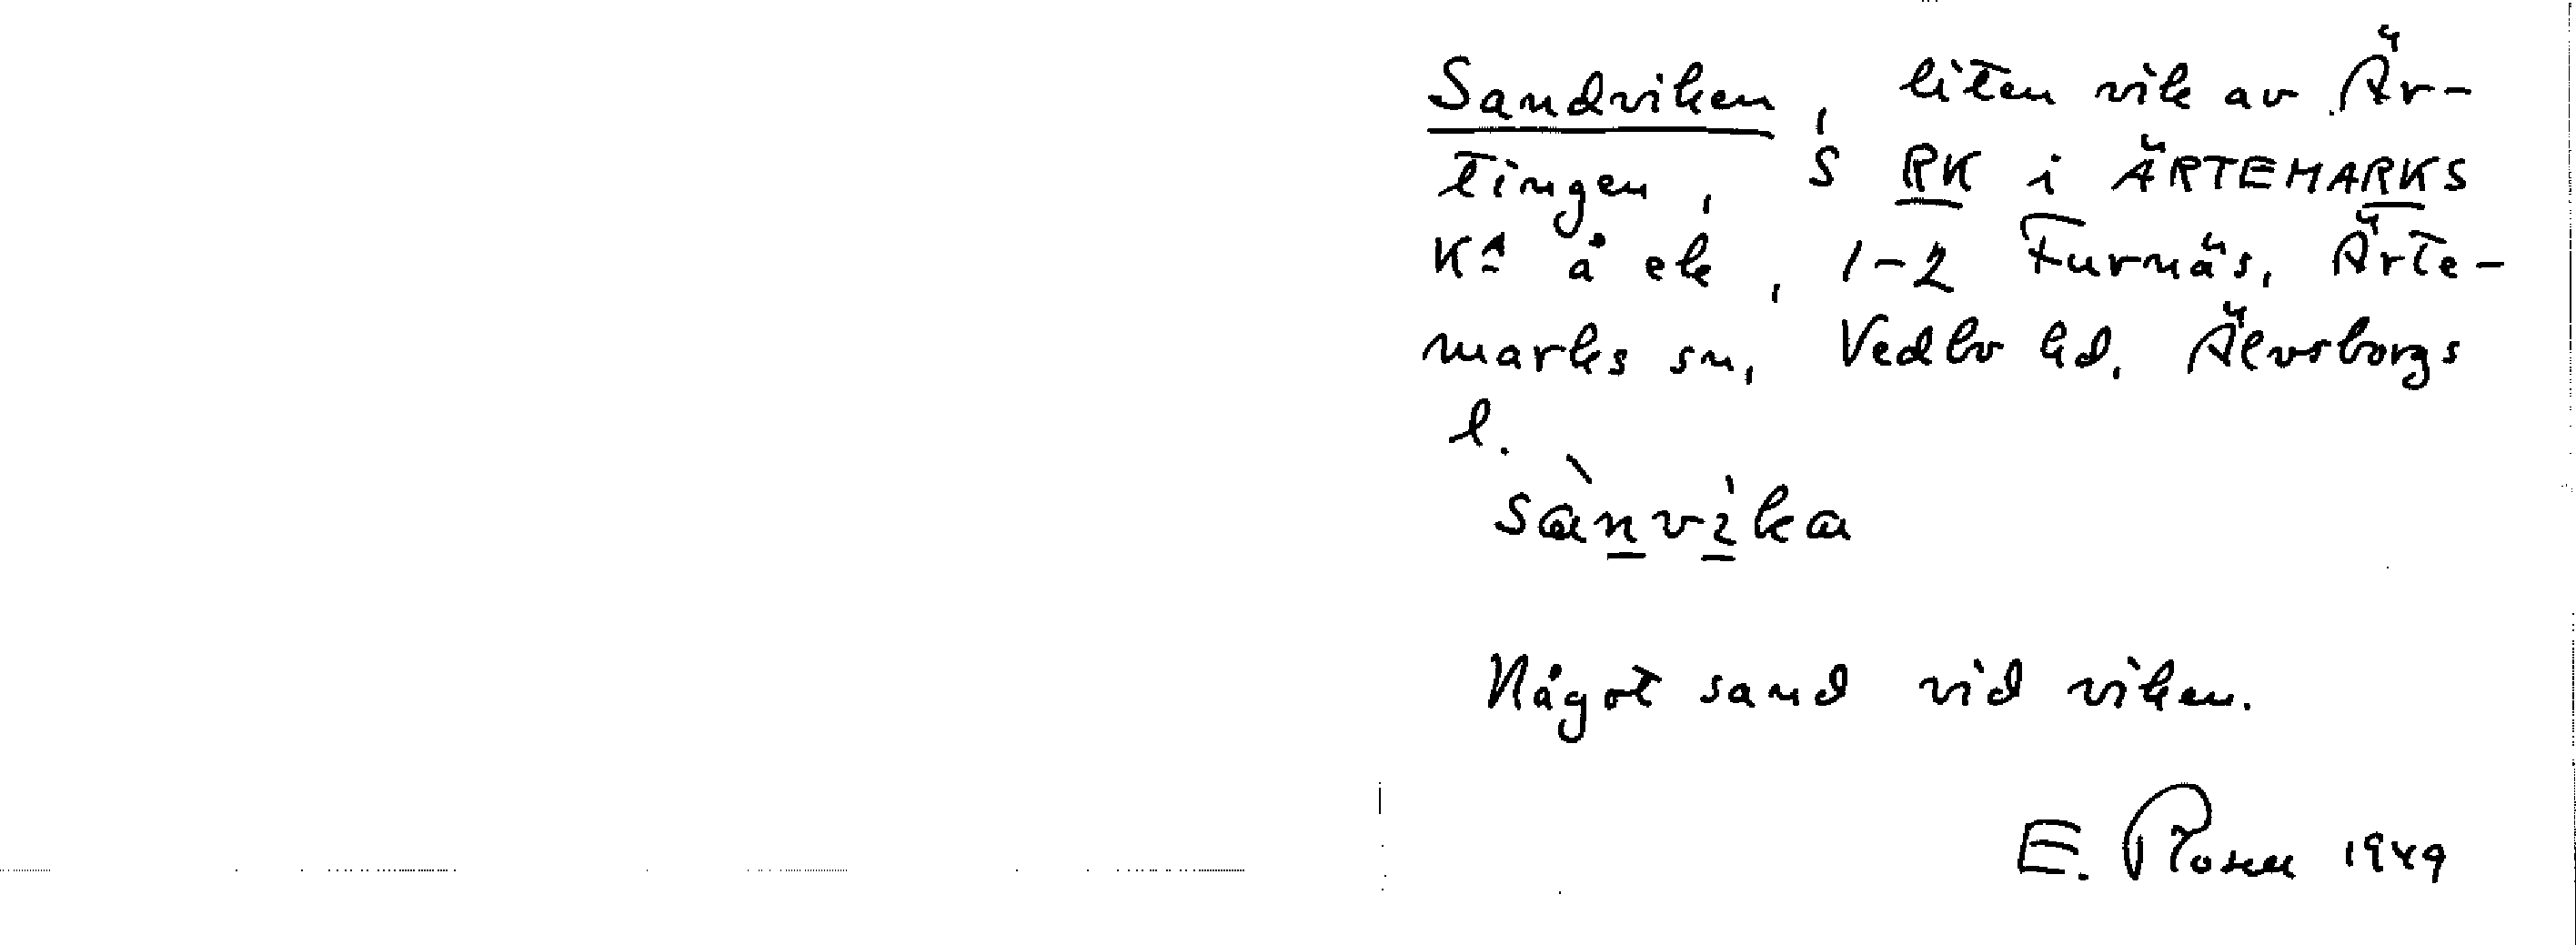 Sandviken, liten vik av Är-
tingen, S RK i ÄRTEMARKS
KA å ek, 1-2 Furnäs, Ärte-
marks sn, Vedbo hd. Älvsborgs
l.
sànvìka
Något sand vid viken.
E. Rosell 1949